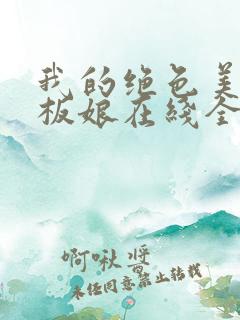 我的绝色美
板娘在线全
啊啾酱
未经同意禁止转载